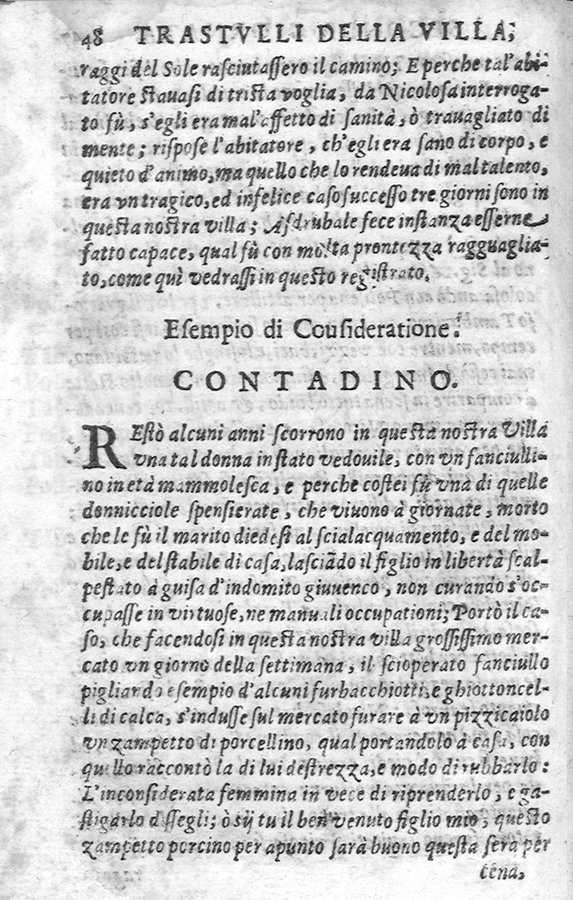 48 TRASTVLLI DELLA VILLA;
raggi del Sole rasciutassero il camino; E perche tal'abi-
tatore stavasi di trista voglia, da Nicolosa interroga-
to fù, s'egli era mal'affetto di sanità, ò travagliato di
mente; rispose l'abitatore, ch'egli era sano di corpo, e
quieto d'animo, ma quello che lo rendeva di mal talento,
era vn tragico, ed infelice caso successo tre giorni sono in
questa nostra villa; Asdrubale fece instanza esserne
fatto capace, qual fù con molta prontezza ragguaglia-
to, come quì vedrassi in questo registrato.
Esempio di Consideratione.
CONTADINO.
REstò alcuni anni scorrono in questa nostra Villa
vna tal donna in stato vedovile, con vn fanciulli-
no in età mammolesca, e perche costei fù vna di quelle
donnicciole spensierate, che vivono à giornate, morto
che le fù il marito diedesi al scialacquamento, e del mo-
bile, e del stabile di casa, lasciãdo il figlio in libertà scal-
pestato à guisa d'indomito giuvenco, non curando s'oc-
cupasse in virtuose, ne manuali occupationi; Portò il ca-
so, che facendosi in questa nostra villa grossissimo mer-
cato vn giorno della settimana, il scioperato fanciullo
pigliando esempio d'alcuni furbacchiotti, e ghiottoncel-
li di calca, s'indusse sul mercato furare à vn pizzicaiolo
vn zampetto di porcellino, qual portandolo à casa, con
quello raccontò la di lui destrezza, e modo di rubbarlo:
L'inconsiderata femmina in vece di riprenderlo, e ga-
stigarlo dissegli; ò sij tu il ben venuto figlio mio, questo
zampetto porcino per apunto sarà buono questa sera per
cena,